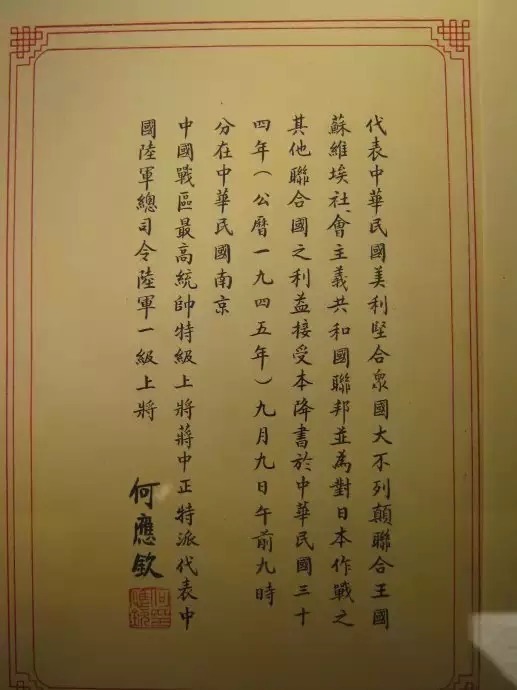 代表中華民國美利堅合眾國大不列顛聯合王國
蘇維埃社會主義共和國聯邦並為對日本作戰之
其他聯合國之利益接受本降書於中華民國三十
四年(公曆一九四五年)九月九日午前九時
分在中華民國南京
中國戰區最高統帥特級上將蔣中正特派代表中
國陸軍總司令陸軍一級上將
何應欽